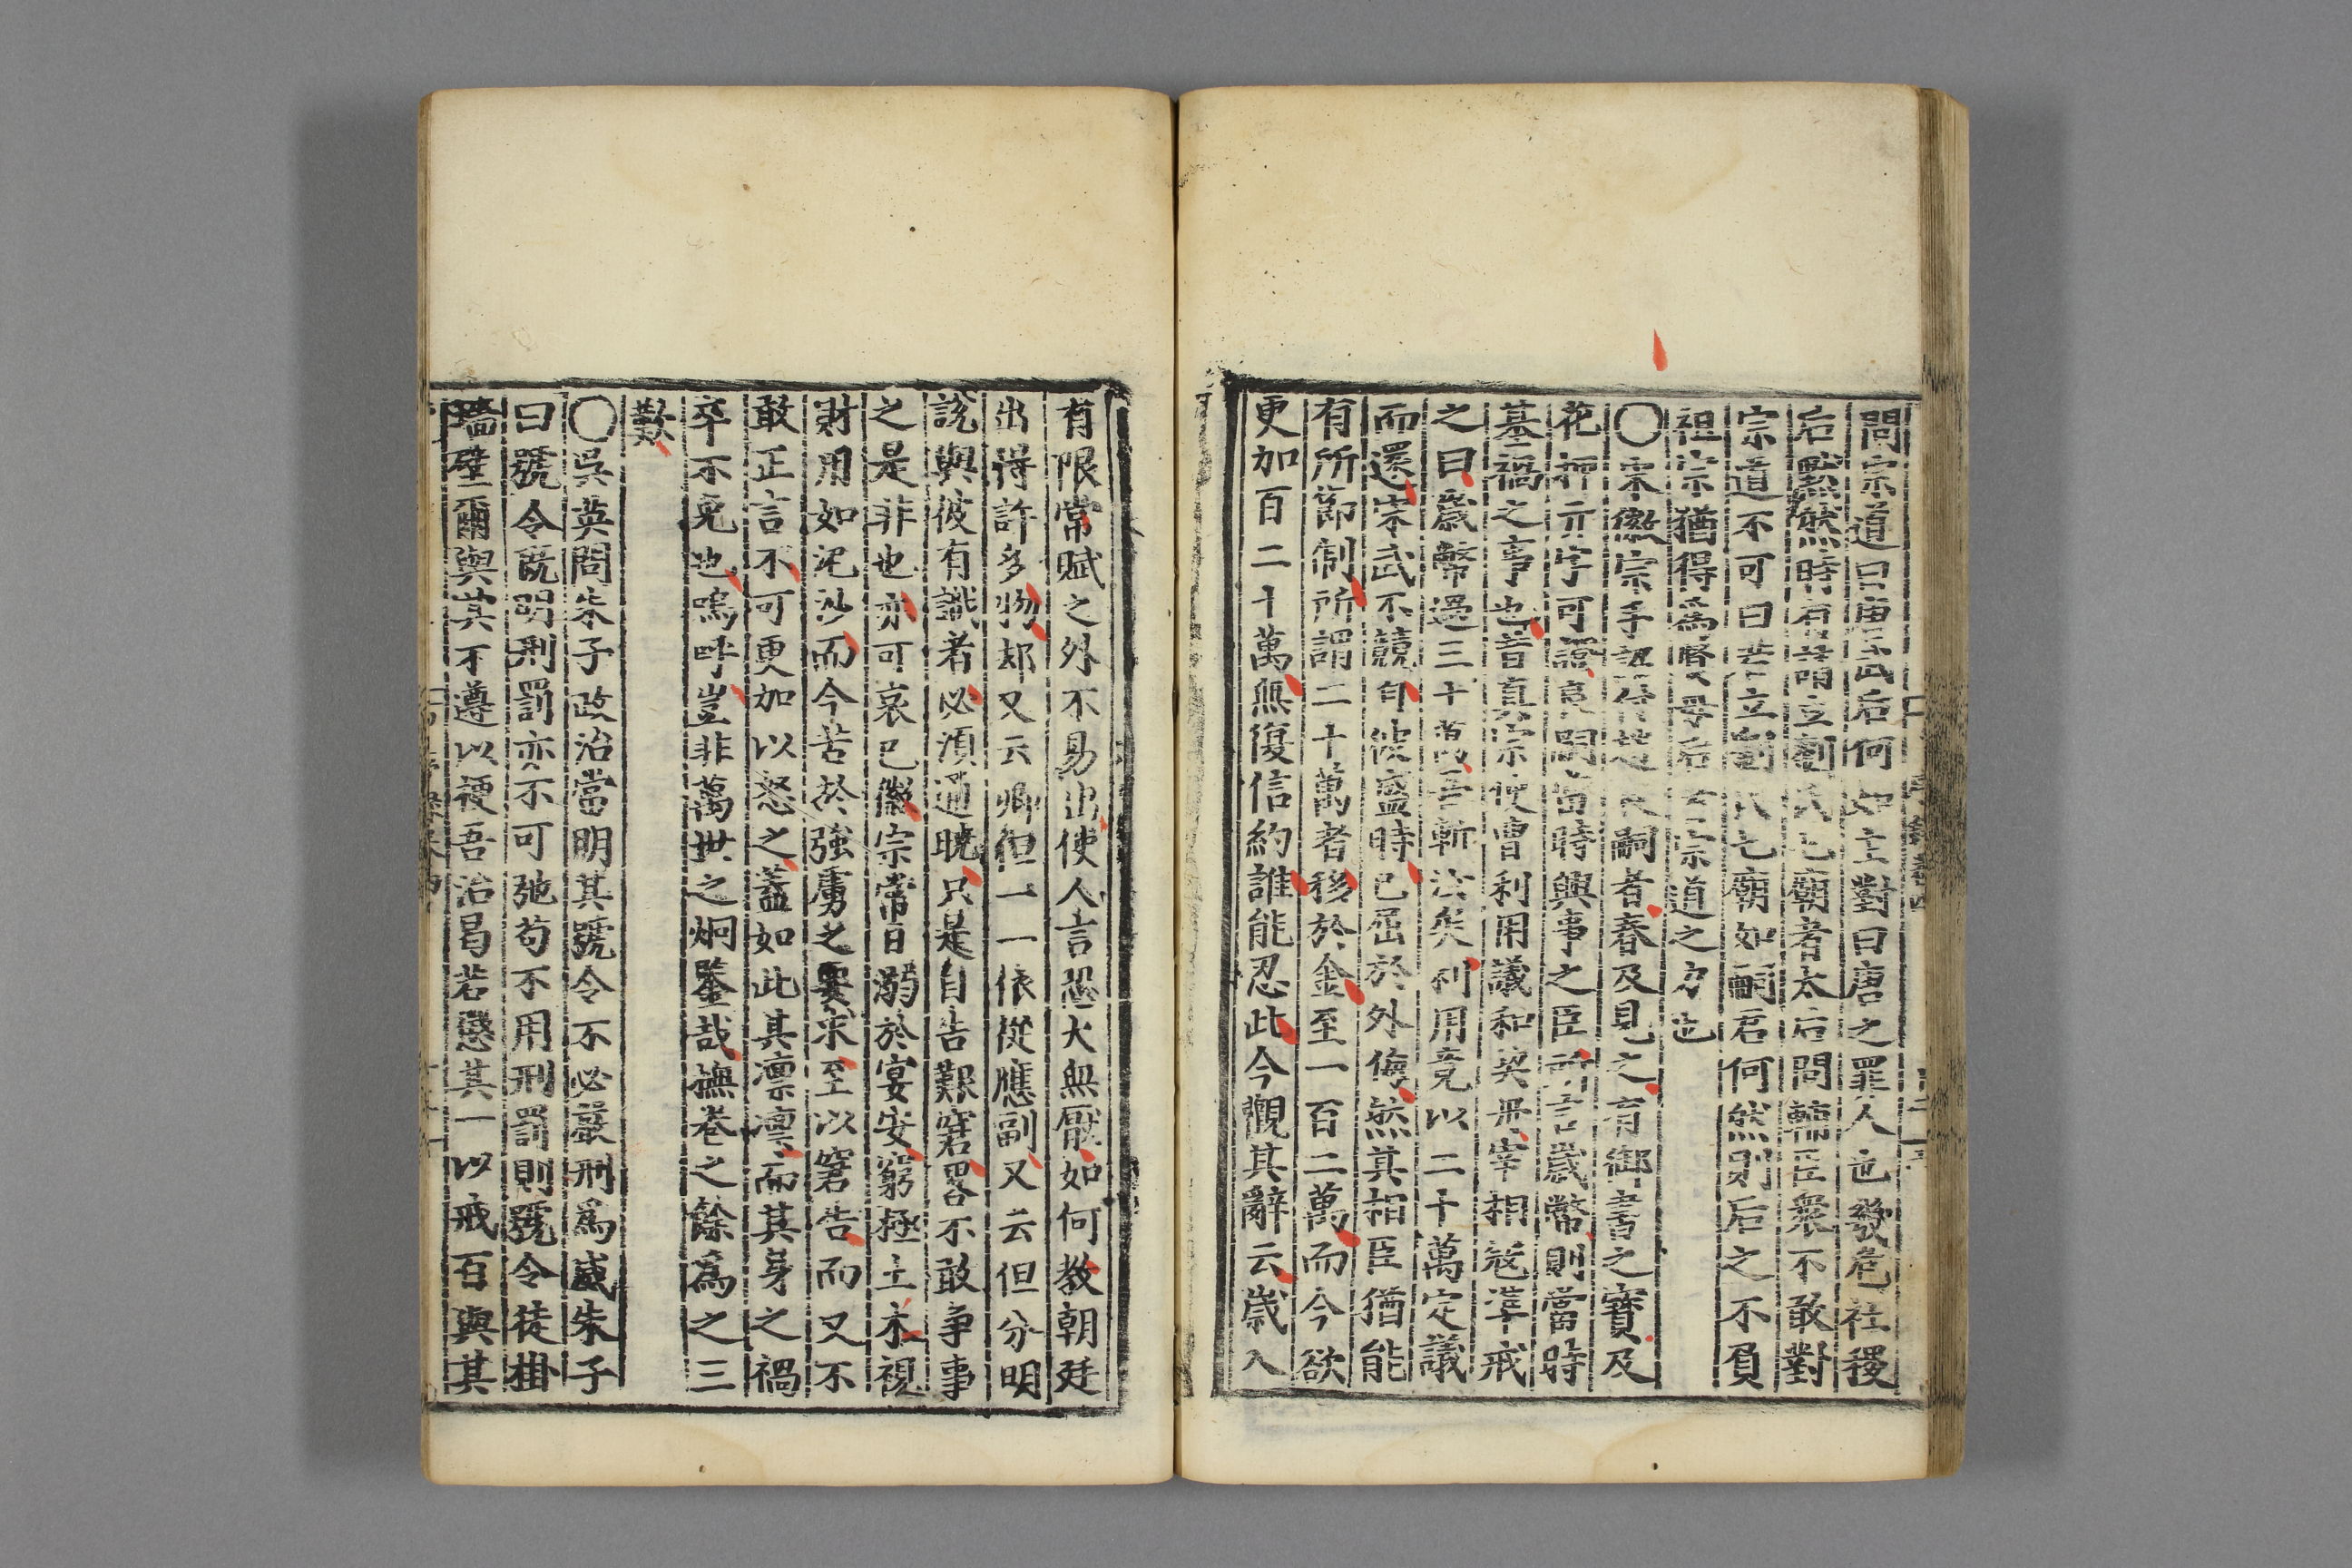 問宗道曰唐武后何如主對曰唐之罪人也發危社稷
后默然時有請立劉氏七廟者太后問輔臣衆不敢對
宗道不可曰若立劉氏七廟如嗣君何然則后之不負
祖宗猶得爲賢母后者宗道之力也
○宋徽宗手詔 嗣者春及見之有御書之寶及
花押亓字可證 當時與事之臣所言歲幣則當時
基禍之事也昔真宗使曹利用議和契丹宰相寇準戒
之曰歲幣過三十萬吾斬汝矣利用竟以二十萬定議
而還宋武不競自彼盛時已屈於外侮然其相臣猶能
有所節制所謂二十萬者移於金至一百二萬而今欲
更加百二十萬無復信約誰能忍此今觀其辭云歲入
有限常賦之外不易出使人言恐大無厭如何教朝廷
出得許多物却又云卿但一一依從應副又云但分明
說與彼有識者必須通曉只是自告艱窘畧不敢争事
之是非也亦可哀已徽宗常日溺於宴安窮極土木視
財用如泥沙而今苦於強虜之要求至以窘告而又不
敢正言不可更加以怒之蓋如此其凛凛而其身之禍
卒不免也嗚呼豈非萬世之炯鑒哉撫卷之餘爲之三
歎
○吳英問朱子政治當明其號令不必嚴刑爲威朱子
曰號令旣明刑罰亦不可弛苟不用刑罰則號令徒掛
墻壁爾與其不遵以梗吾治曷若懲其一以戒百與其